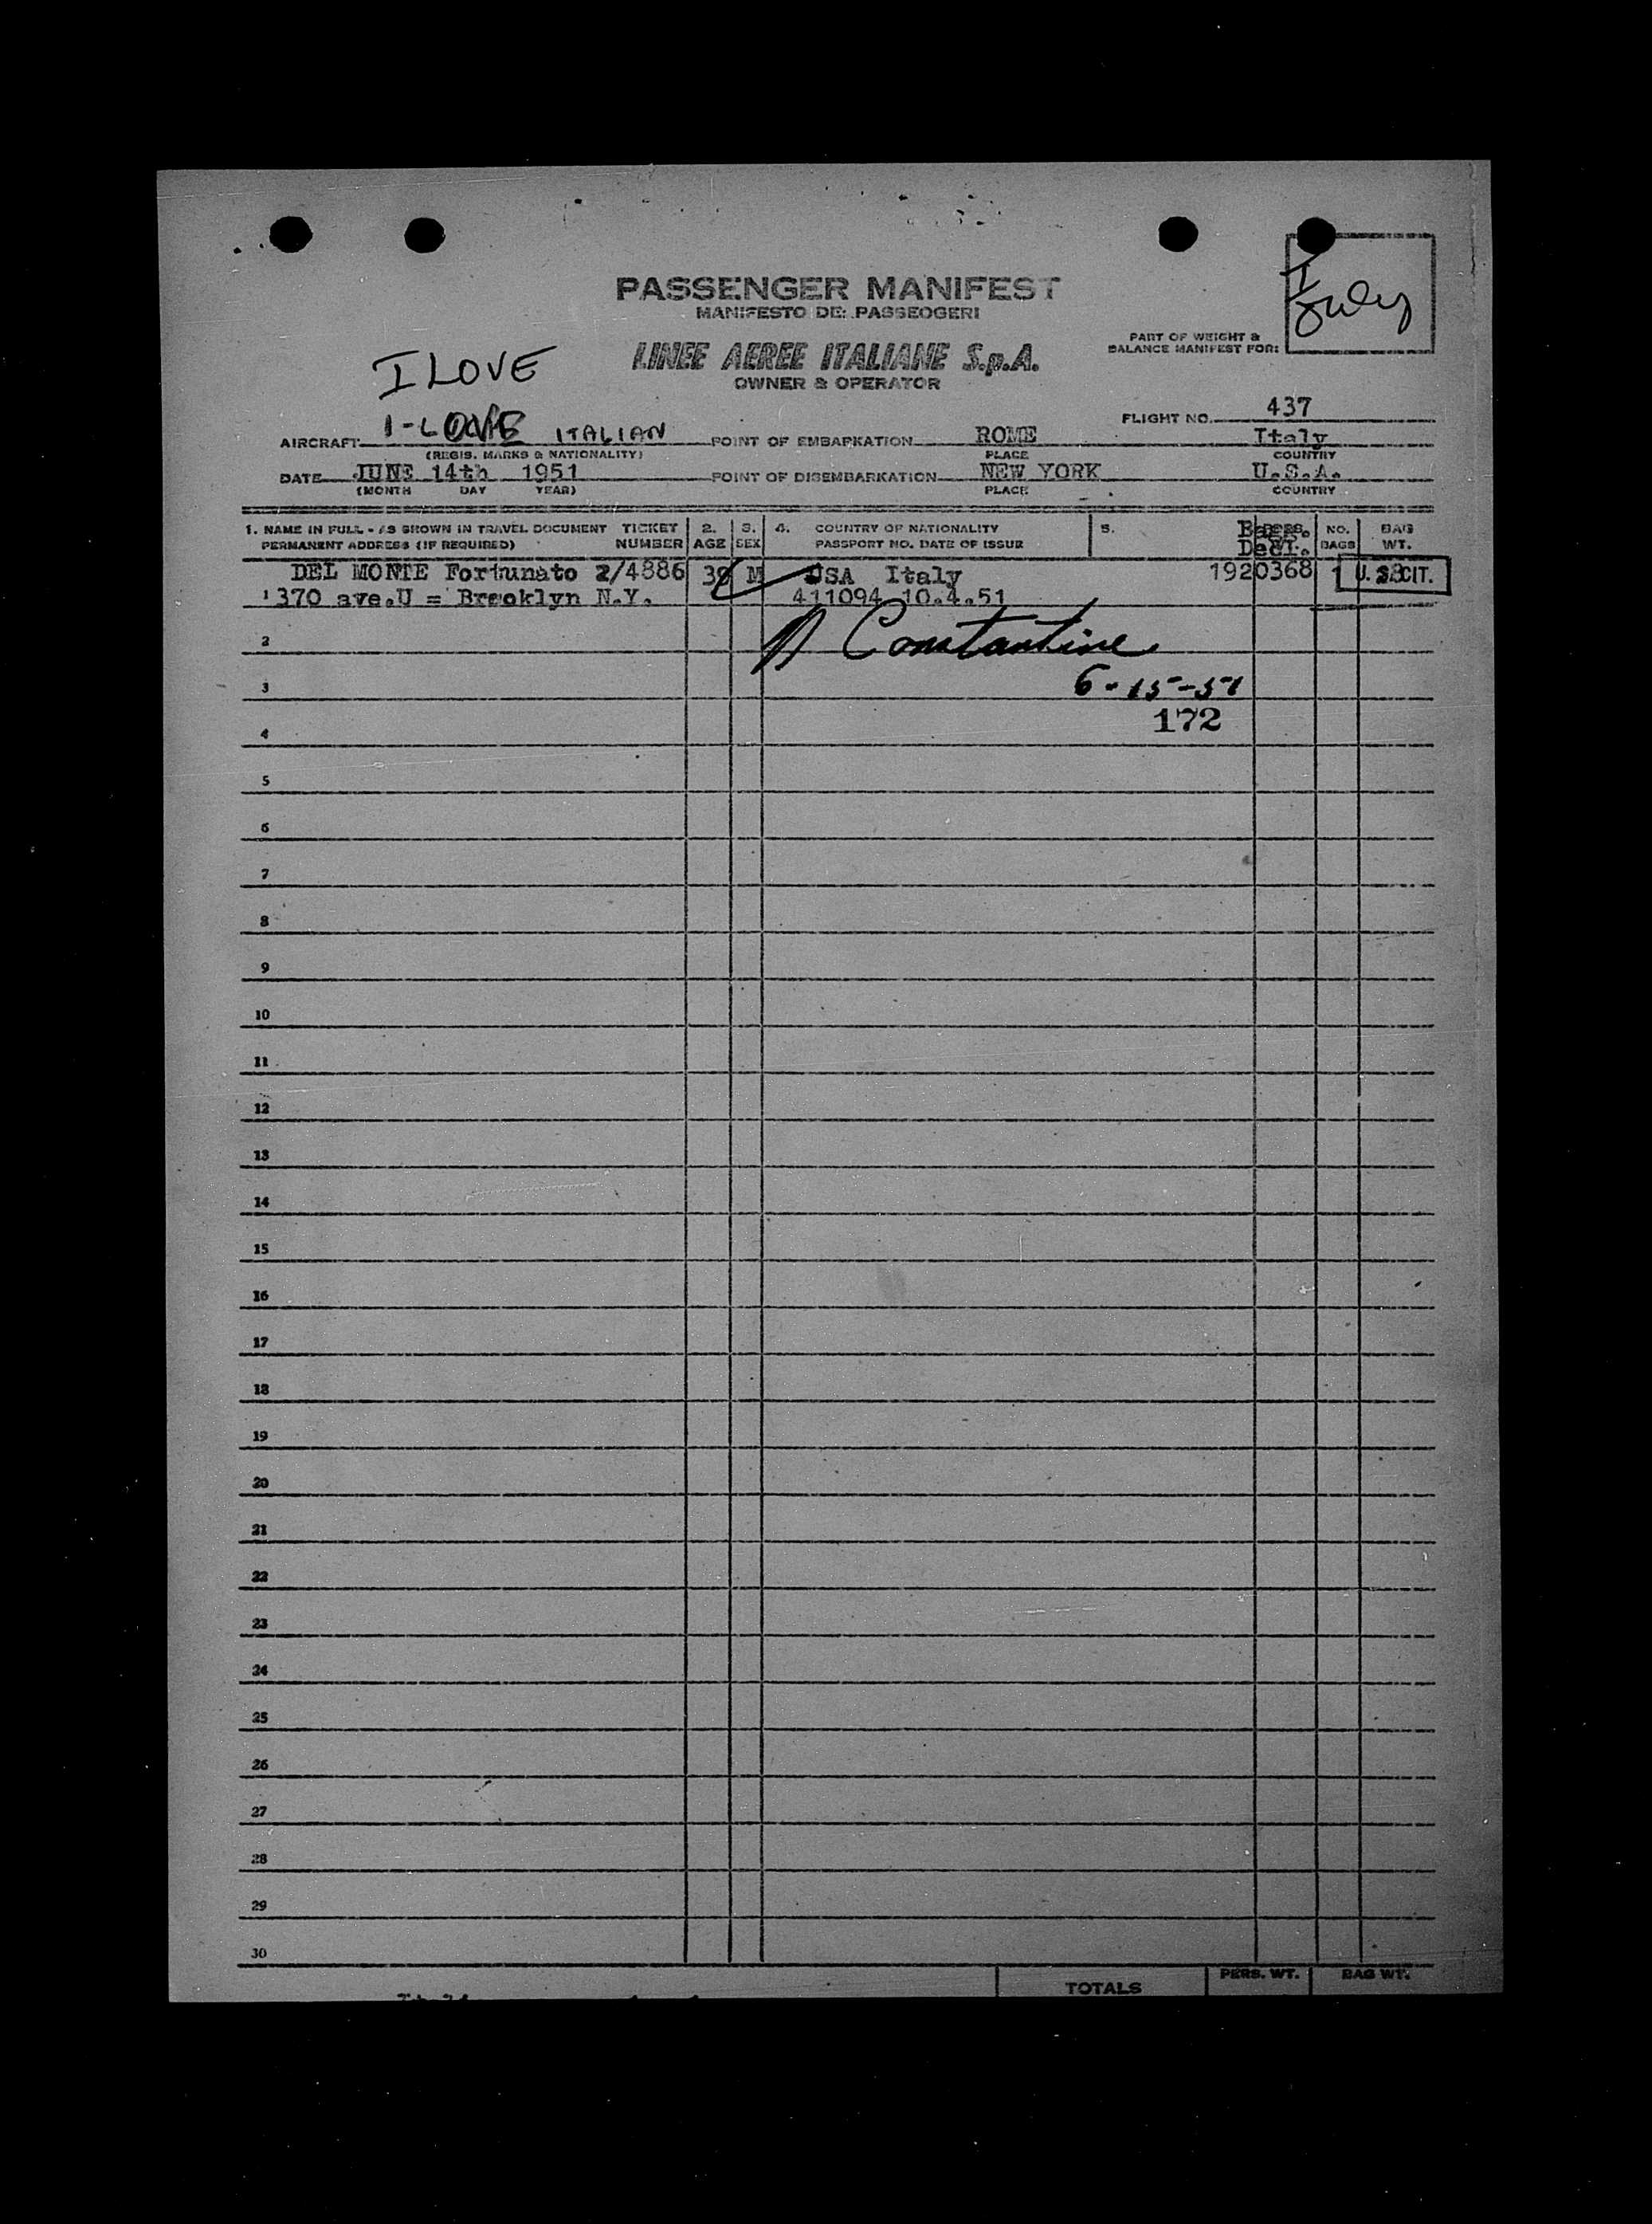 PASSENGER MANIFEST
MANIFESTO DEI PASSEGGERI
LINEE AEREE ITALIANE S.p.A.
OWNER & OPERATOR
PART OF WEIGHT &
BALANCE MANIFEST FOR:
I LOVE
FLIGHT NO. 437
AIRCRAFT I-LOVE ITALIAN POINT OF EMBARKATION ROME Italy
(REGIS. MARKS & NATIONALITY) PLACE COUNTRY
DATE JUNE 14th 1951 POINT OF DISEMBARKATION NEW YORK U.S.A.
(MONTH DAY YEAR) PLACE COUNTRY
1. NAME IN FULL - AS SHOWN IN TRAVEL DOCUMENT TICKET 2. 3. 4. COUNTRY OF NATIONALITY 5. Bagg. NO. BAG
PERMANENT ADDRESS (IF REQUIRED) NUMBER AGE SEX PASSPORT NO. DATE OF ISSUE Decl. BAGS WT.
DEL MONTE Fortunato 2/4886 M USA Italy 1920368 1 U.S.CIT.
1 370 ave.U = Brooklyn N.Y. 411094 10.4.51
Constantine
2
6-15-51
3
172
4
5
6
7
8
9
10
11
12
13
14
15
16
17
18
19
20
21
22
23
24
25
26
27
28
29
30
TOTALS PERS. WT. BAG WT.